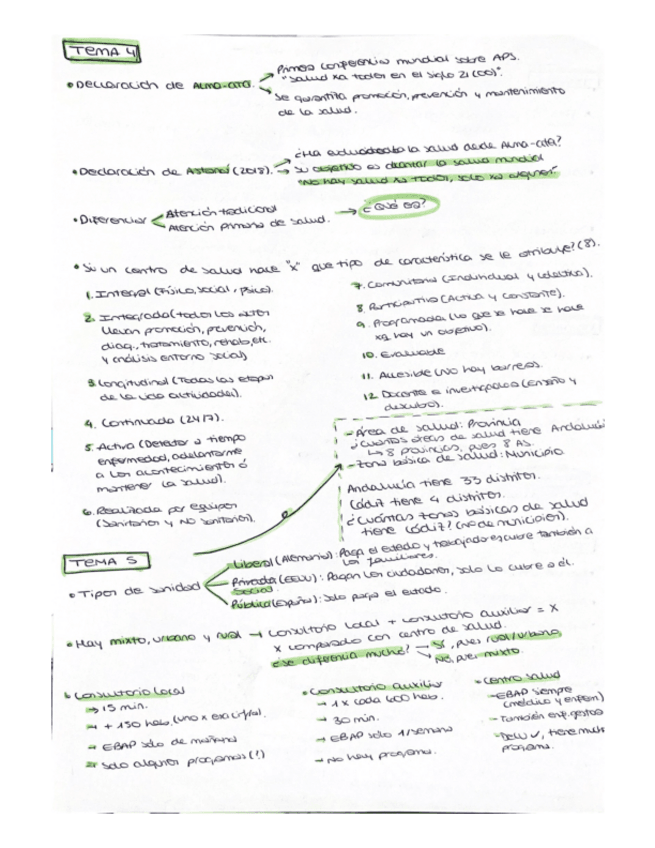 TEMA 4
Primera conferencia mundial sobre APS.
• Declaración de ALMA-ATA.
"Salud xa todos en el siglo 21 (00)".
Se garantiza promoción, prevención y mantenimiento
de la salud.
¿Ha evolucionado la salud desde Alma-ata?
• Declaración de Astaná (2018). → Su objetivo es alcanzar la salud mundial
"No hay salud xa todos, solo xa algunos"
• Diferenciar
Atención tradicional
Atención primaria de salud.
→ ¿Qué es?
• Si un centro de salud hace "x" que tipo de característica se le atribuye? (8).
1. Integral (Físico, social, psico).
2. Integrada (todos los
llevan promoción, prevención,
diag., tratamiento, rehab, etc.
y análisis entorno social)
3. Longitudinal (Todas las etapas
de la vida actividades).
4. Continuada (24/7).
5. Activa (Detectar a tiempo
enfermedad, adelantarme
a los acontecimientos ó
mantener la salud).
6. Realizada por equipos
(Sanitarios y NO sanitarios).
7. Comunitaria (Individual y colectiva).
8. Participativa (Activa y constante).
9. Programada (Lo que se hace se hace
xq hay un objetivo).
10. Evaluable
11. Accesible (NO hay barreras).
12. Docente e investigadora (enseño y
descubro).
- Área de salud: Provincia
¿Cuántas áreas de salud tiene Andalucía
↳ 8 provincias, pues 8 AS.
- Zona básica de salud: Municipio
Andalucía tiene 33 distritos.
Cádiz tiene 4 distritos.
¿Cuántas zonas básicas de salud
tiene Cádiz? (nº de municipios).
TEMA 5
• Tipos de sanidad
Liberal (Alemania): Paga el estado y trabajador es cubre también a
los familiares.
Privada (EEUU): Pagan los ciudadanos, solo lo cubre a él.
Social
Pública (España): Solo paga el estado.
• Hay mixto, urbano y rural → Consultorio local + consultorio auxiliar = X
X comparado con centro de salud.
¿se diferencia mucho? → Sí, pues rural/urbano
→ No, pues mixto.
• Consultorio local
→ 15 min.
→ + 150 hab. (uno x esa cifra).
→ EBAP solo de mañana
→ Solo algunos programas (?)
• Consultorio auxiliar
→ 1 x cada 400 hab.
→ 30 min.
→ EBAP solo 1/semana
→ No hay programa.
• Centro salud
- EBAP siempre
(médico y enferm)
- También enf. gestora